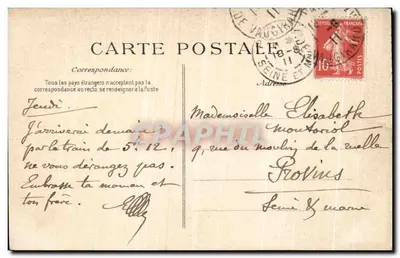 CARTE POSTALE
Correspondance:
Tous les pays étrangers n'acceptant pas la
correspondance au recto, se renseigner à la Poste
Adresse
DE VAUGIRARD
18-8
11
SEINE ET
10
POSTES
CPAPHIL
Jeudi.
J'arriverai demain
par le train de 5h 12,
ne vous dérangez pas.
Embrasse ta maman et
ton frère.
Mademoiselle Elisabeth
Montoriol
9, rue du moulin de la ruelle
Provins
Seine & Marne